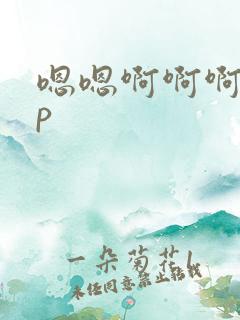 嗯嗯啊啊啊
p
一朵菊花l
未经同意禁止转载